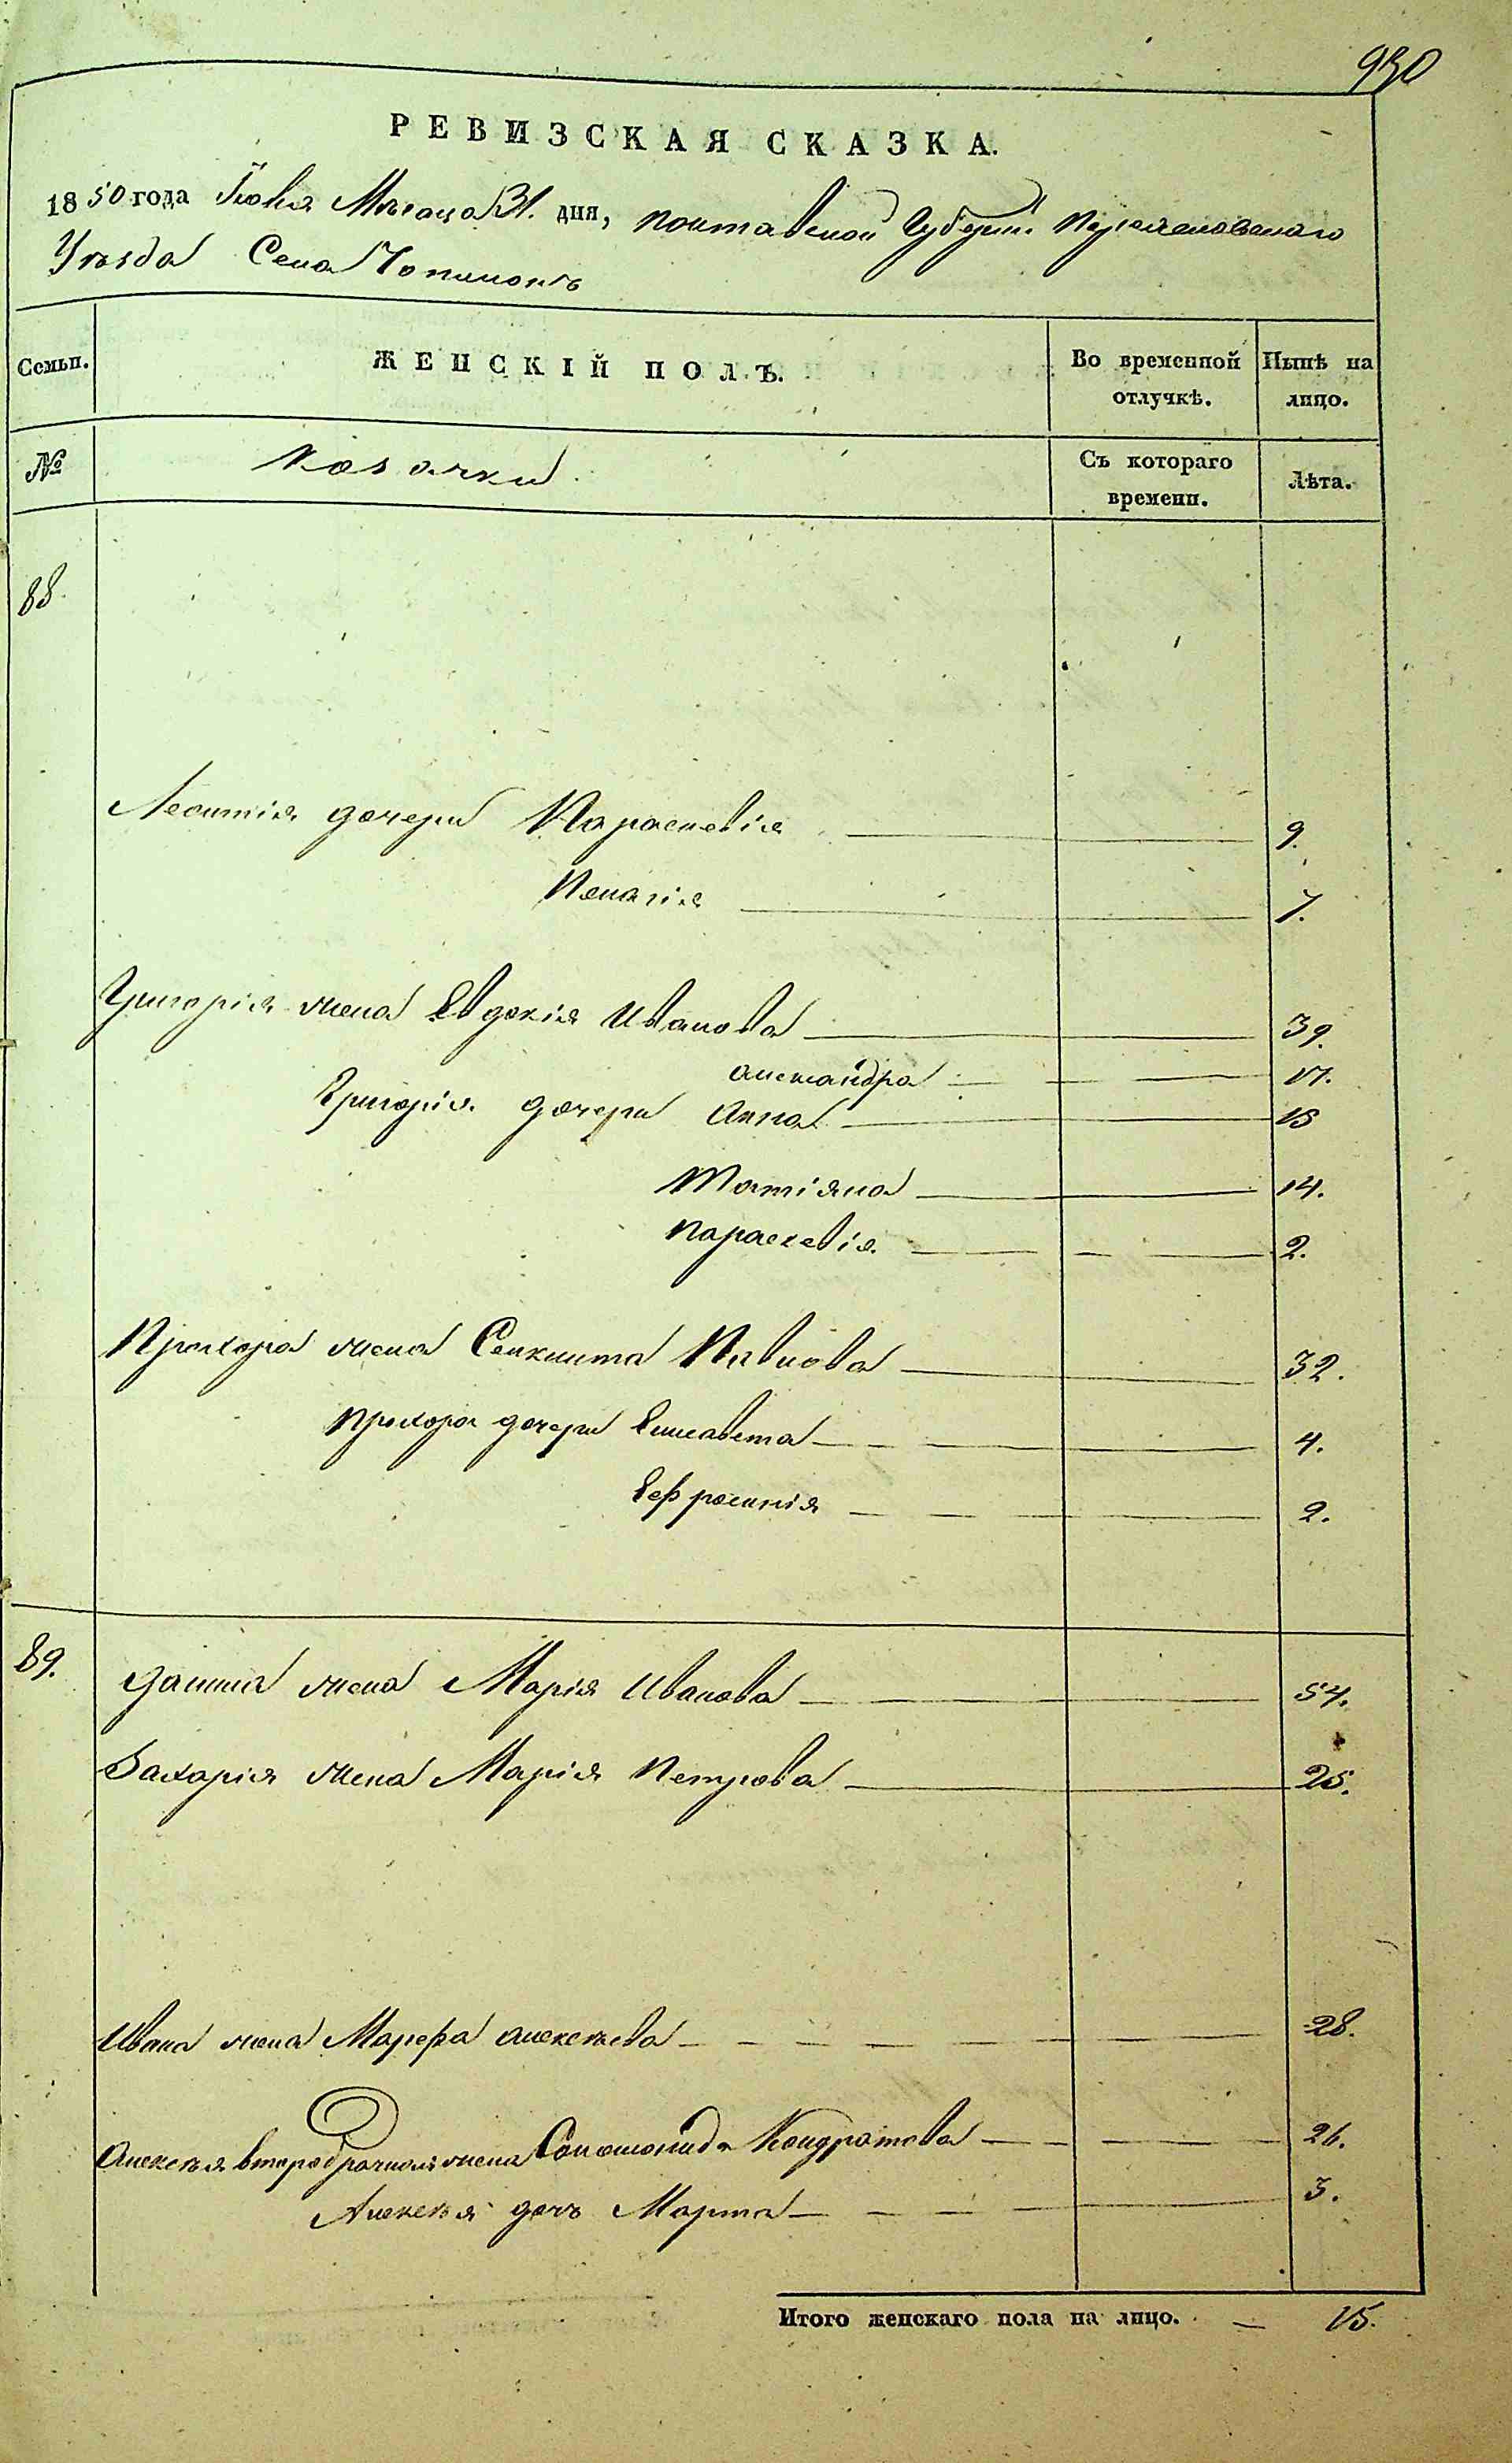 930
РЕВИЗСКАЯ СКАЗКА.
1850 года Іюля Месяца 31. дня, Полтавской Губерніи Переяславскаго
Уѣзда Села Чопилокъ
Семьи. ЖЕНСКІЙ ПОЛЪ. Во временной отлучкѣ. Нынѣ на лицо.
№ Козачки Съ котораго времени. Лѣта.
88.
Леонтія дочери Параскевія 9.
Пелагія 7.
Григорія жена Евдокія Иванова 39.
Александра 17.
Григорія дочери Анна 15
Татіяна 14.
Параскевія 2.
Прохора жена Секлита Павлова 32.
Прохора дочери Елисавета 4.
Ефросинія 2.
89. Данила жена Марія Иванова 54.
Захарія жена Марія Петрова 25.
Ивана жена Марфа Алексѣева 28.
Алексѣя второбрачная жена Соломонида Кондратова 26.
Алексѣя дочь Марта 3.
Итого женскаго пола на лицо. 15.